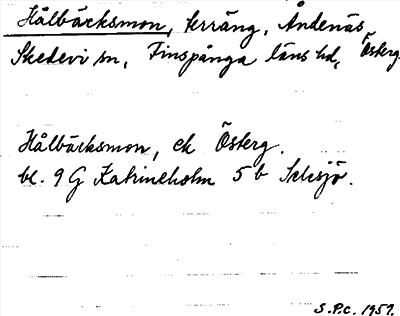 Hålbäcksmon, terräng, Åndenäs
Skedevi sn, Finspånga läns hd, Österg.
Hålbäcksmon, ek Österg.
bl. 9 G Katrineholm 5 b
S.P.C. 1959.